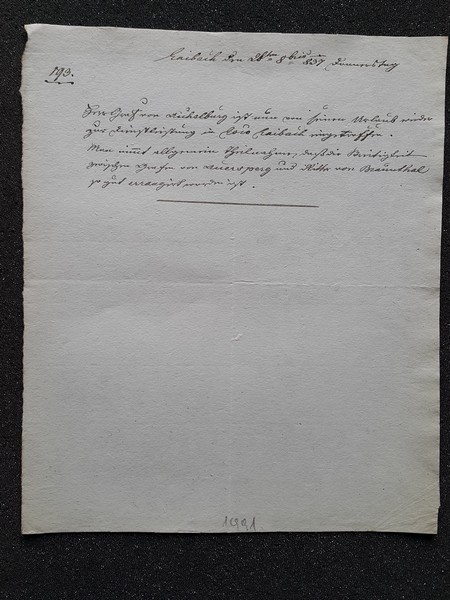 Laibach den 28ten 8bris 837 Donnerstag
193.
Herr Graf von Lichtenburg ist nun von seinem Urlaub wieder
zur Dienstleistung in Loco Laibach eingetroffen.
Man nimmt allgemein Theilnahme, daß die Streitigkeit
zwischen Grafen von Auersperg und Ritter von Braunthal
so gut arrangirt worden ist.
1991